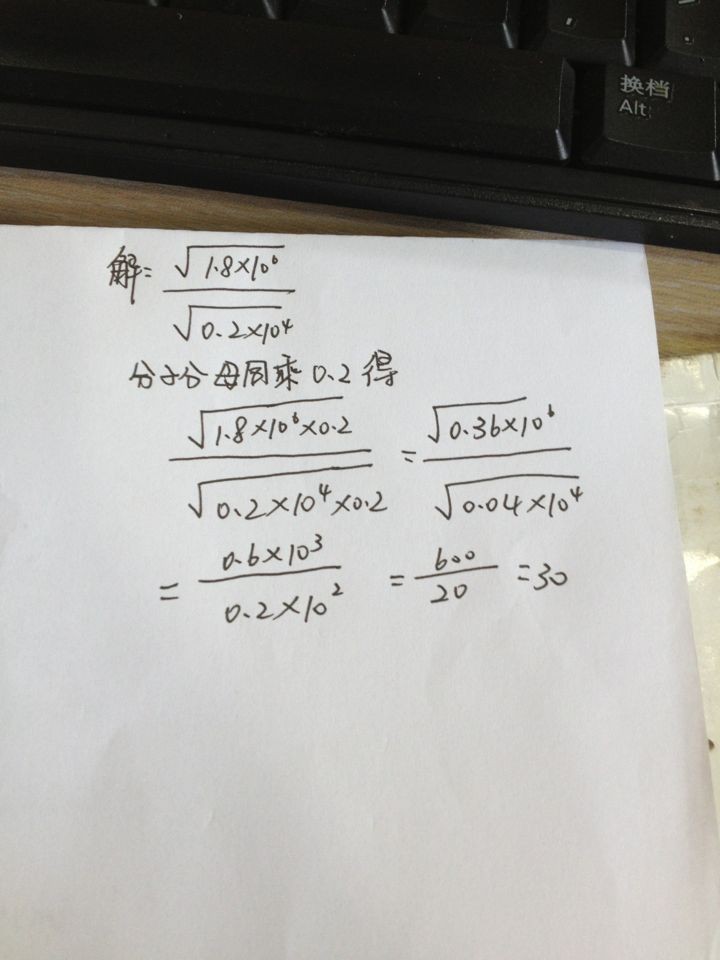 换档
Alt
解: √1.8×10⁶ / √0.2×10⁴
分子分母同乘0.2得
√1.8×10⁶×0.2 / √0.2×10⁴×0.2 = √0.36×10⁶ / √0.04×10⁴
= 0.6×10³ / 0.2×10² = 600 / 20 = 30